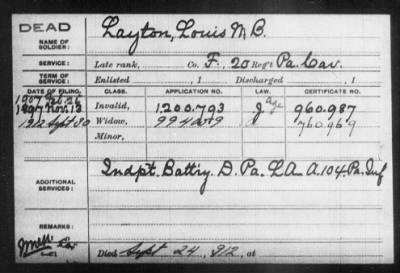 DEAD
NAME OF SOLDIER: Layton, Louis M B.
SERVICE: Late rank, Co. F. 20 Reg't Pa. Cav.
TERM OF SERVICE: Enlisted , 1 Discharged , 1
DATE OF FILING. CLASS. APPLICATION NO. LAW. CERTIFICATE NO.
1907 Feb. 26
1897 Nov. 13 Invalid, 1.200.793 J age 960.987
1912 Sept 30 Widow, 994009 760.969
Minor,
ADDITIONAL SERVICES: Indpt. Battry. D. Pa. L.A. A. 104 Pa. Inf
REMARKS:
Died Sept 24, 912, at